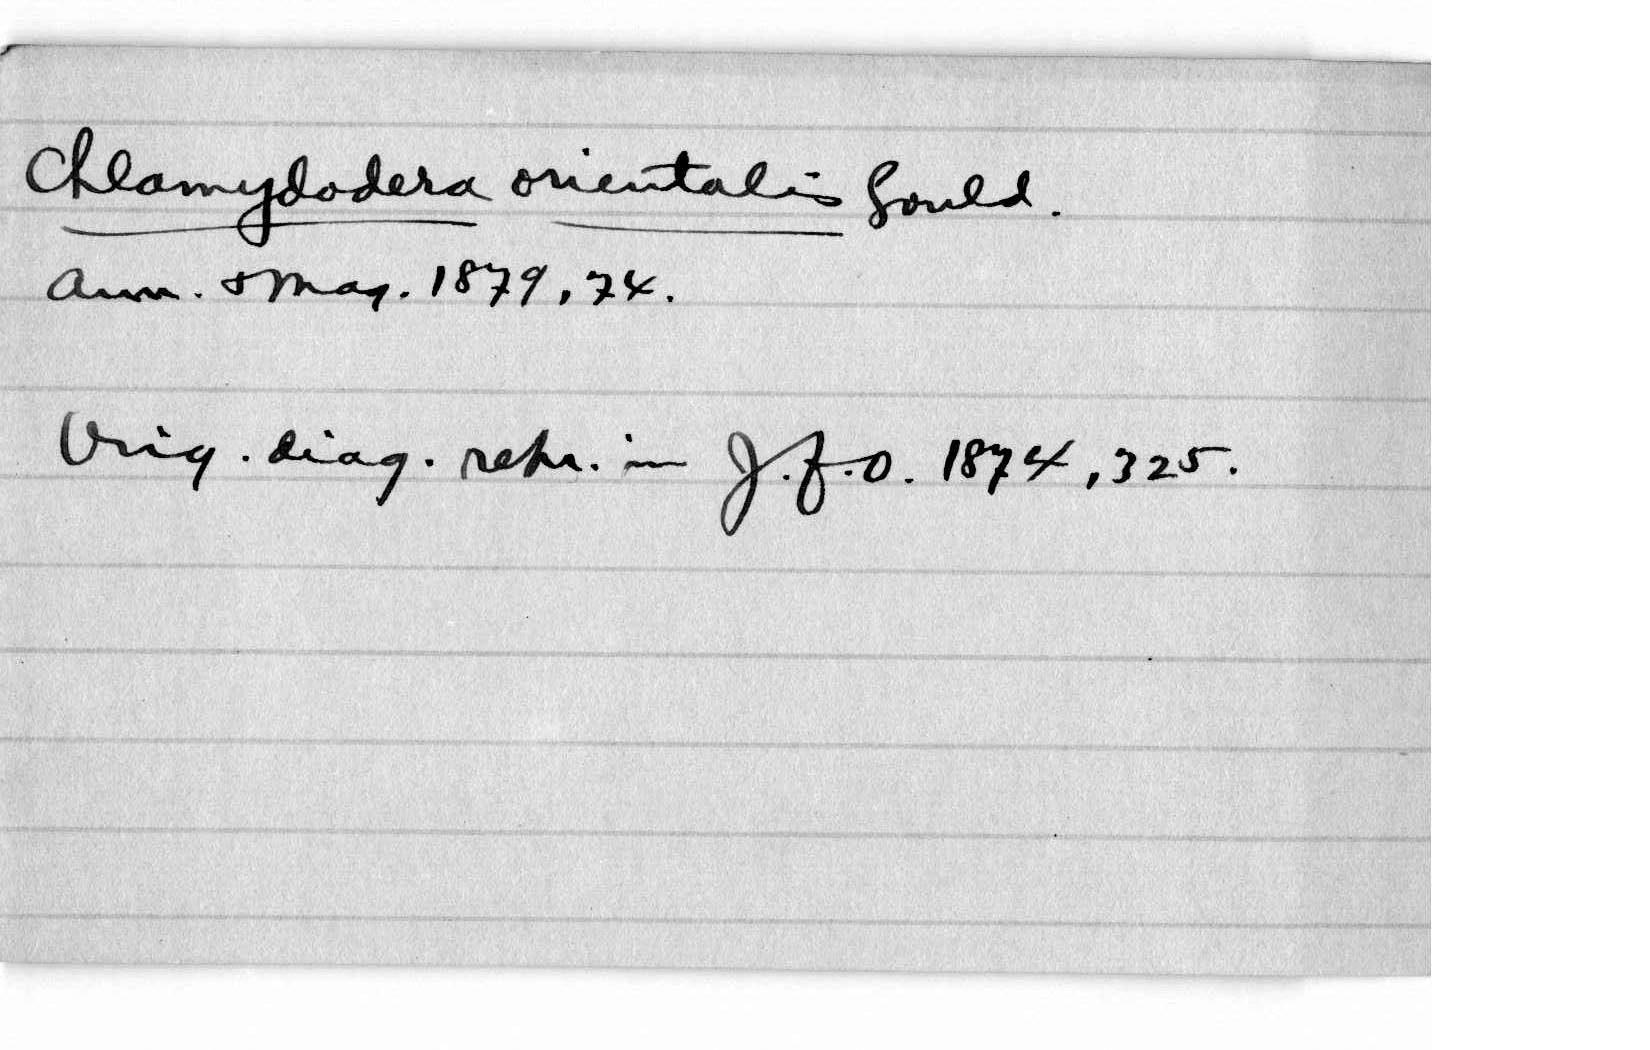 Chlamydodera orientalis Gould.
Ann. & Mag. 1879, 74.
Orig. diag. repr. in J.f.O. 1874, 325.